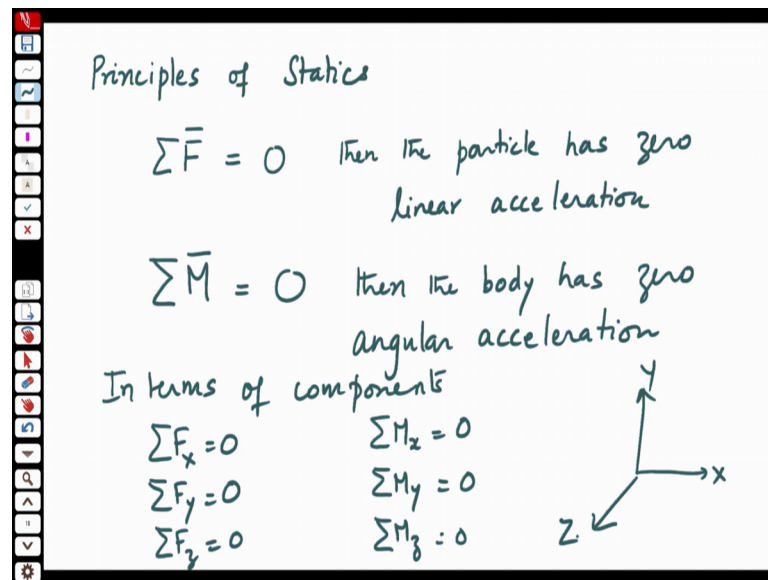 Principles of Statics
ΣF̅ = 0 then the particle has zero
linear acceleration
ΣM̅ = 0 then the body has zero
angular acceleration
In terms of components
ΣFx = 0 ΣMx = 0
ΣFy = 0 ΣMy = 0
ΣFz = 0 ΣMz = 0
Y
X
Z